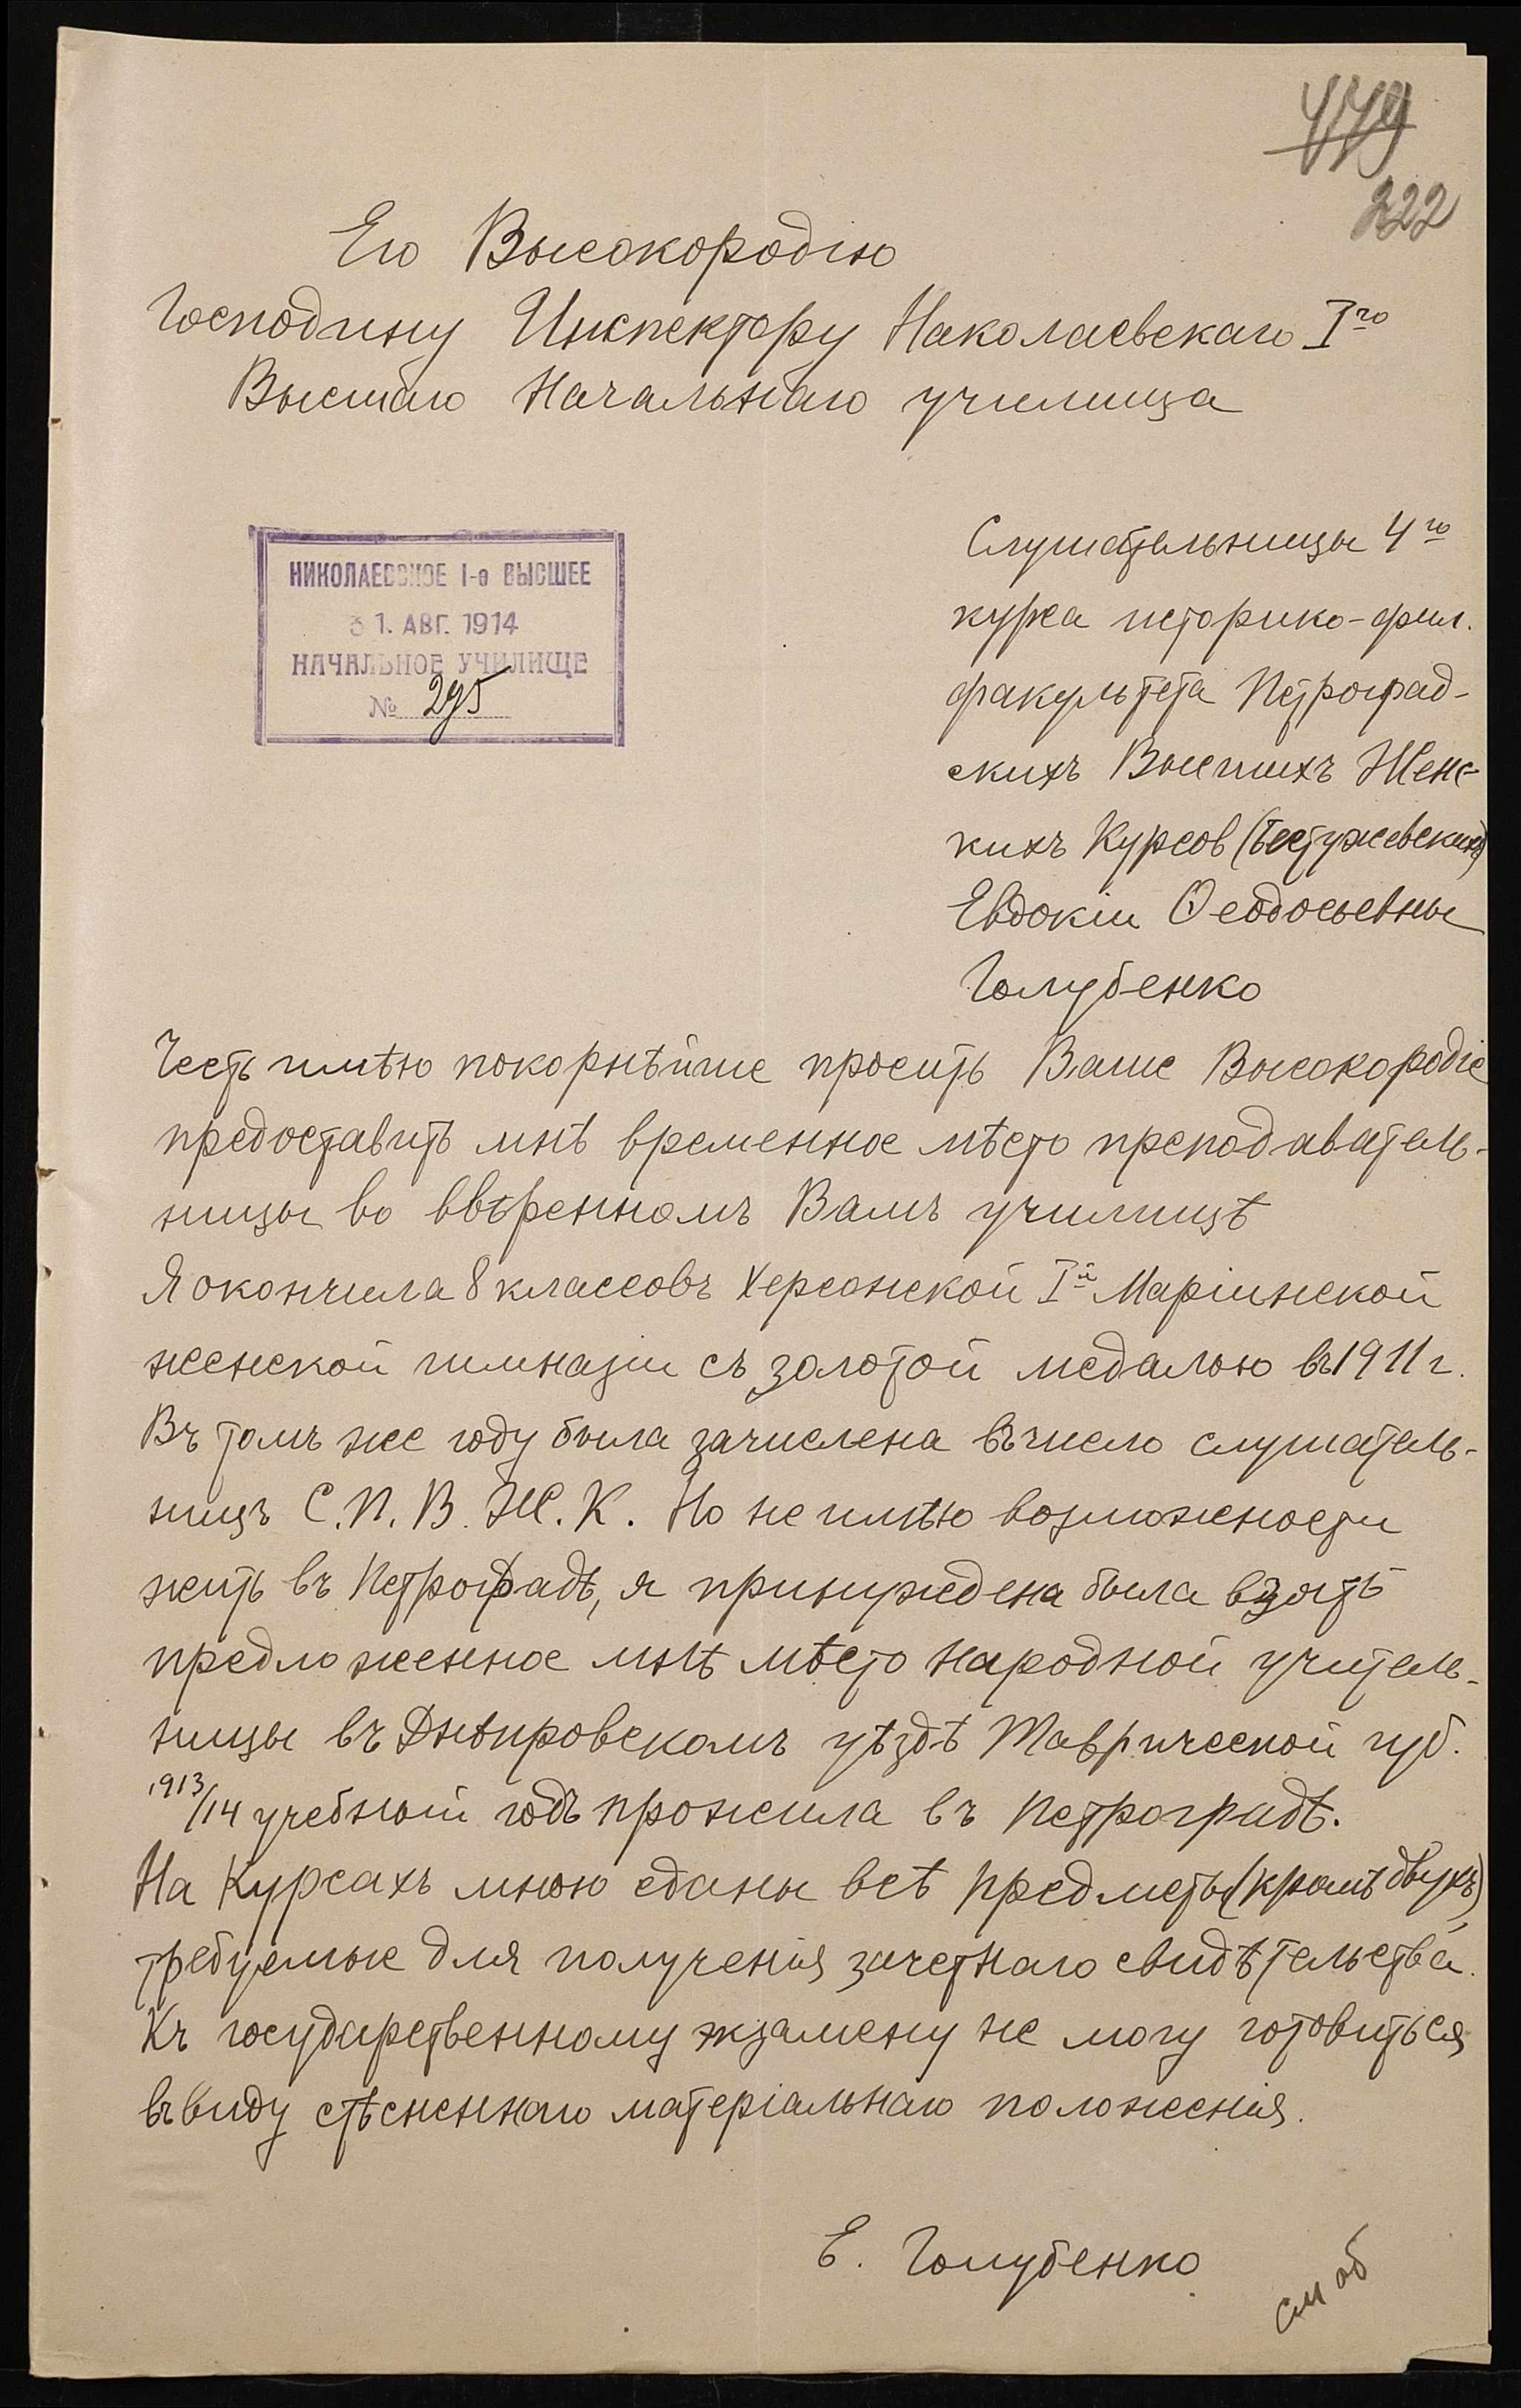 222
Его Высокородію
Господину Инспектору Николаевскаго Iго
Высшаго Начальнаго училища
НИКОЛАЕВСКОЕ I-е ВЫСШЕЕ
31. АВГ. 1914
НАЧАЛЬНОЕ УЧИЛИЩЕ
№ 295
Слушательницы 4го
курса историко-фил.
факультета Петроград-
скихъ Высшихъ Женс-
кихъ Курсов (Бестужевскихъ)
Евдокіи Ѳеодосьевны
Голубенко
Честь имѣю покорнѣйше просить Ваше Высокородіе
предоставить мнѣ временное мѣсто преподаватель-
ницы во ввѣренномъ Вамъ училищѣ
Я окончила 8 классовъ Херсонской Iй Маріинской
женской гимназіи съ золотой медалью въ 1911 г.
Въ томъ же году была зачислена въ число слушатель-
ницъ С.П.В.Ж.К. Но не имѣю возможности
жить въ Петроградѣ, я принуждена была взять
предложенное мнѣ мѣсто народной учитель-
ницы въ Днѣпровскомъ уѣздѣ Таврической губ.
1913/14 учебный годъ прожила въ Петроградѣ.
На Курсахъ мною сданы всѣ предметы (кромѣ двухъ),
требуемые для полученія зачетнаго свидѣтельства.
Къ государственному экзамену не могу готовиться
въ виду стѣсненнаго матеріальнаго положенія.
Е. Голубенко
см об